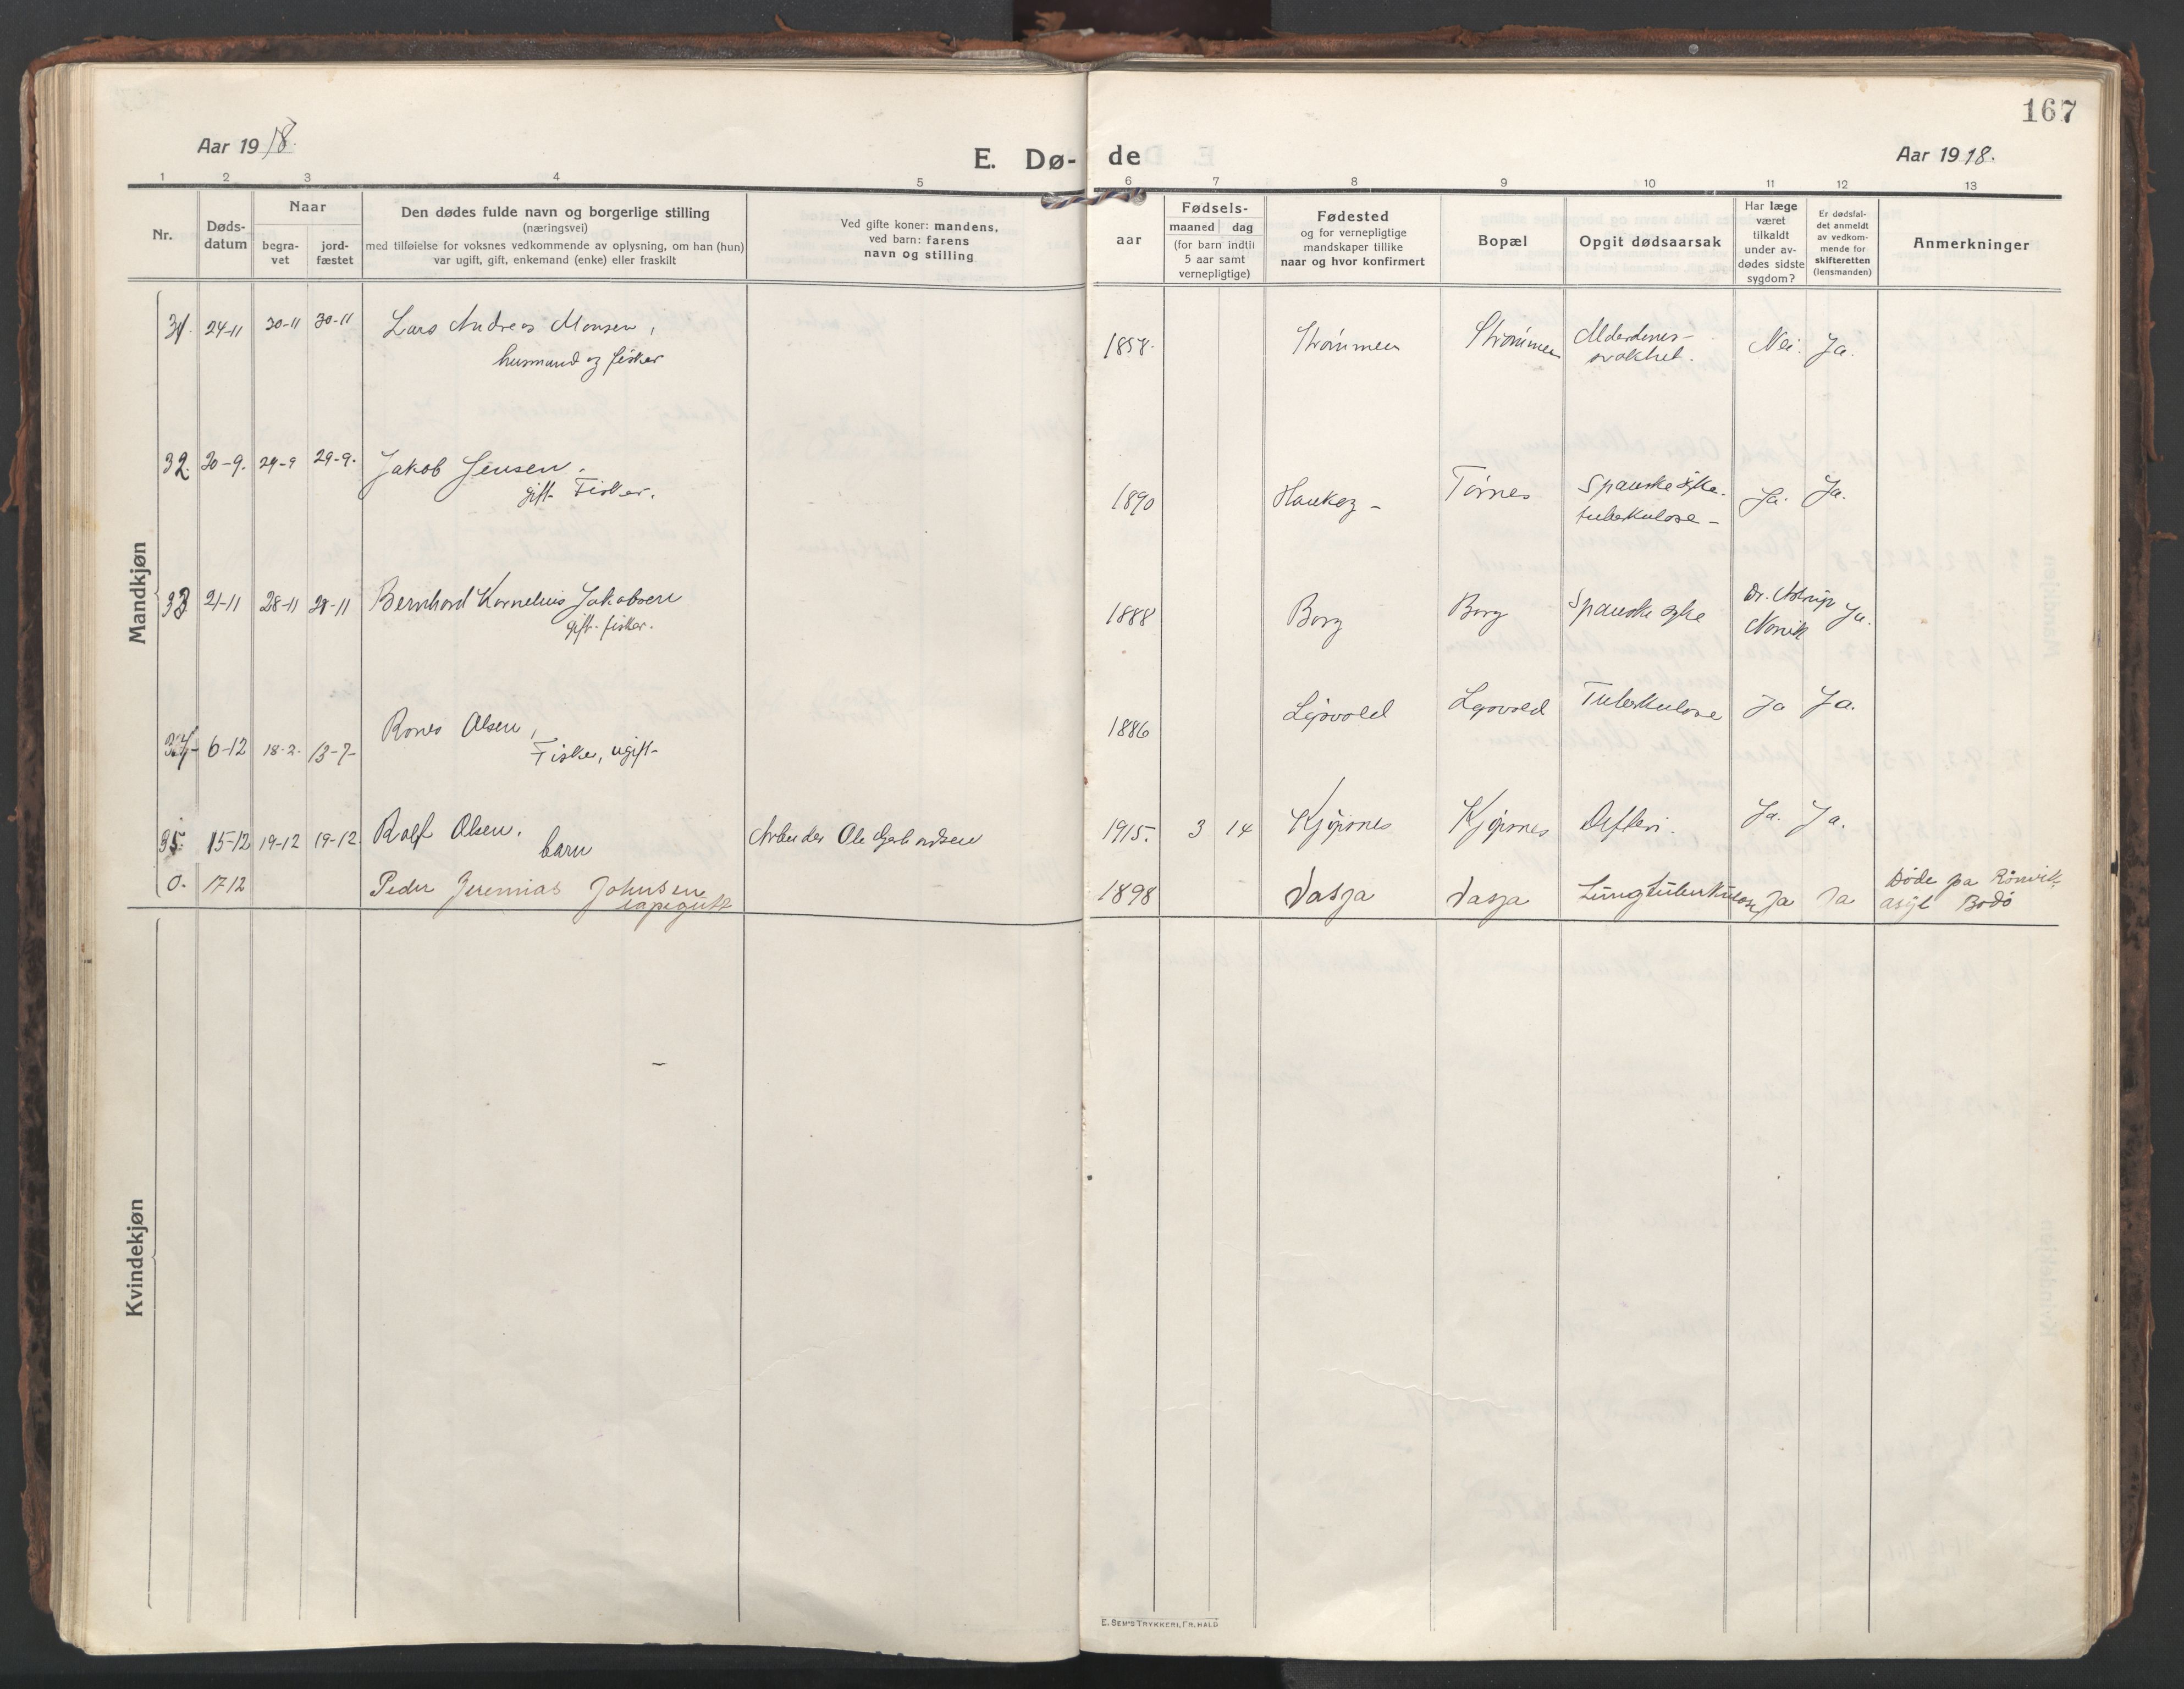 167
Aar 1918.
E. Dø-
de
Aar 1918.
1 2 3 4 5 6 7 8 9 10 11 12 13
Nr.
Døds-
datum
Naar
begra-
vet
jord-
fæstet
Den dødes fulde navn og borgerlige stilling
(næringsvei)
med tilføielse for voksnes vedkommende av oplysning, om han (hun)
var ugift, gift, enkemand (enke) eller fraskilt
Ved gifte koner: mandens,
ved barn: farens
navn og stilling
aar
Fødsels-
maaned dag
(for barn indtil
5 aar samt
vernepligtige)
Fødested
og for vernepligtige
mandskaper tillike
naar og hvor konfirmert
Bopæl
Opgit dødsaarsak
Har læge
været
tilkaldt
under av-
dødes sidste
sygdom?
Er dødsfal-
det anmeldt
av vedkom-
mende for
skifteretten
(lensmanden)
Anmerkninger
Mandkjøn
31. 24-11 30-11 30-11 Lars Andreas Monsen,
husmand og fisker
1858. Strømmen Strømmen Alderdoms-
svakhet. Nei. Ja.
32. 20-9. 29-9 29-9. Jakob Jensen.
gift. Fisker.
1890 Haukøy - Tørnes Spanske syke.
tuberkulose - Ja. Ja.
33 21-11 28-11 28-11 Bernhard Kornelius Jakobsen
gift. fisker.
1888 Borg Borg Spanske syke Dr. Astrup
Narvik Ja.
34- 6-12 18-2- 13-7- Olsen,
Fisker, ugift-
1886 Tuberkulose Ja Ja.
35. 15-12 19-12 19-12. Rolf Olsen.
barn
Arbeider Ole
1915. 3 14 Kjøpsnes Kjøpsnes Difteri. Ja. Ja.
0. 17 12 Peder Jeremias Johnsen
lapegutt
1898 Vasja Vasja Lungtuberkulose Ja Ja Døde paa Rönvik
asyl Bodö
Kvindekjøn
E. SEM'S TRYKKERI, FR. HALD